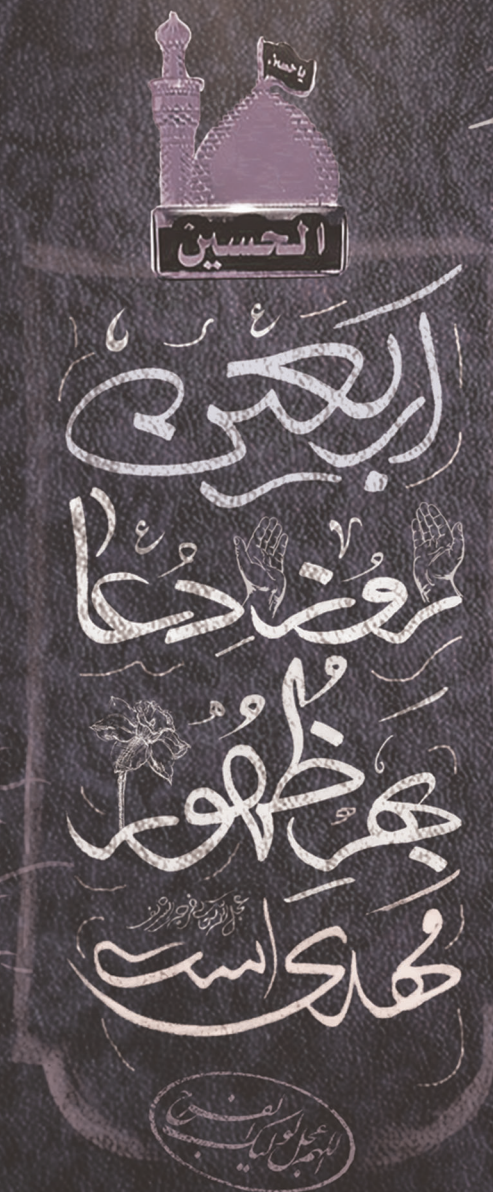 یا حسین
الحسین
اربعین
روز دعا
بهر ظهور
مهدی است
عجل الله تعالی فرجه الشریف
اللهم عجل لولیک الفرج